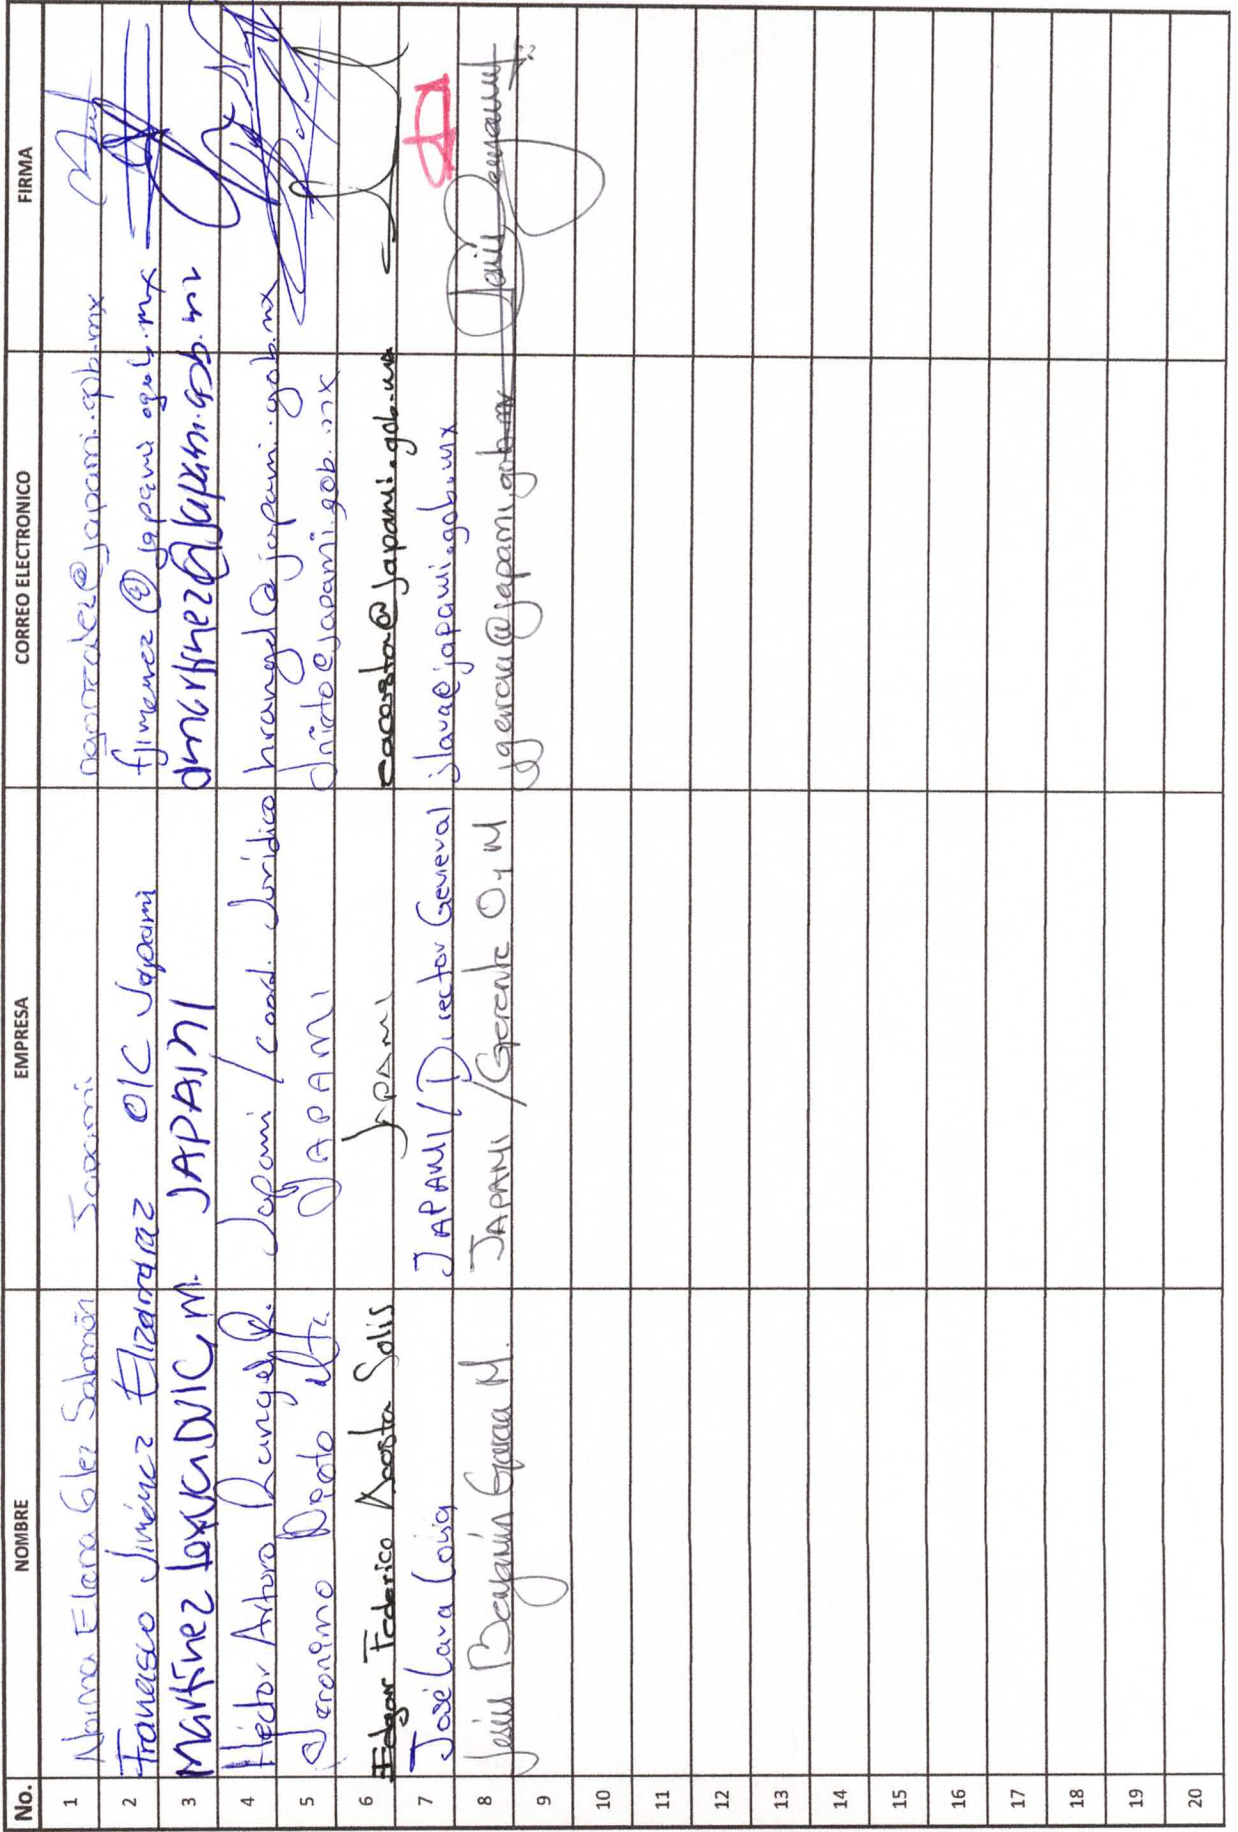 No. NOMBRE EMPRESA CORREO ELECTRONICO FIRMA
1 Norma Elena Glez Salomón Japami ngonzalez@japami.gob.mx
2 Francisco Jiménez Elizarraraz OIC Japami fjimenez@japami.gob.mx
3 Martinez M. JAPAMI dmartinez@japami.gob.mx
4 Héctor Arturo Rangel R. Japami / Coord. Jurídico hrangel@japami.gob.mx
5 Jeronimo Nieto JAPAMI jnieto@japami.gob.mx
6 Edgar Federico Acosta Solis JAPAMI eacosta@japami.gob.mx
7 José Lara Lona JAPAMI/Director General jlara@japami.gob.mx
8 Jesús Benjamín Garcia M. JAPAMI /Gerente O y M jgarcia@japami.gob.mx
9
10
11
12
13
14
15
16
17
18
19
20